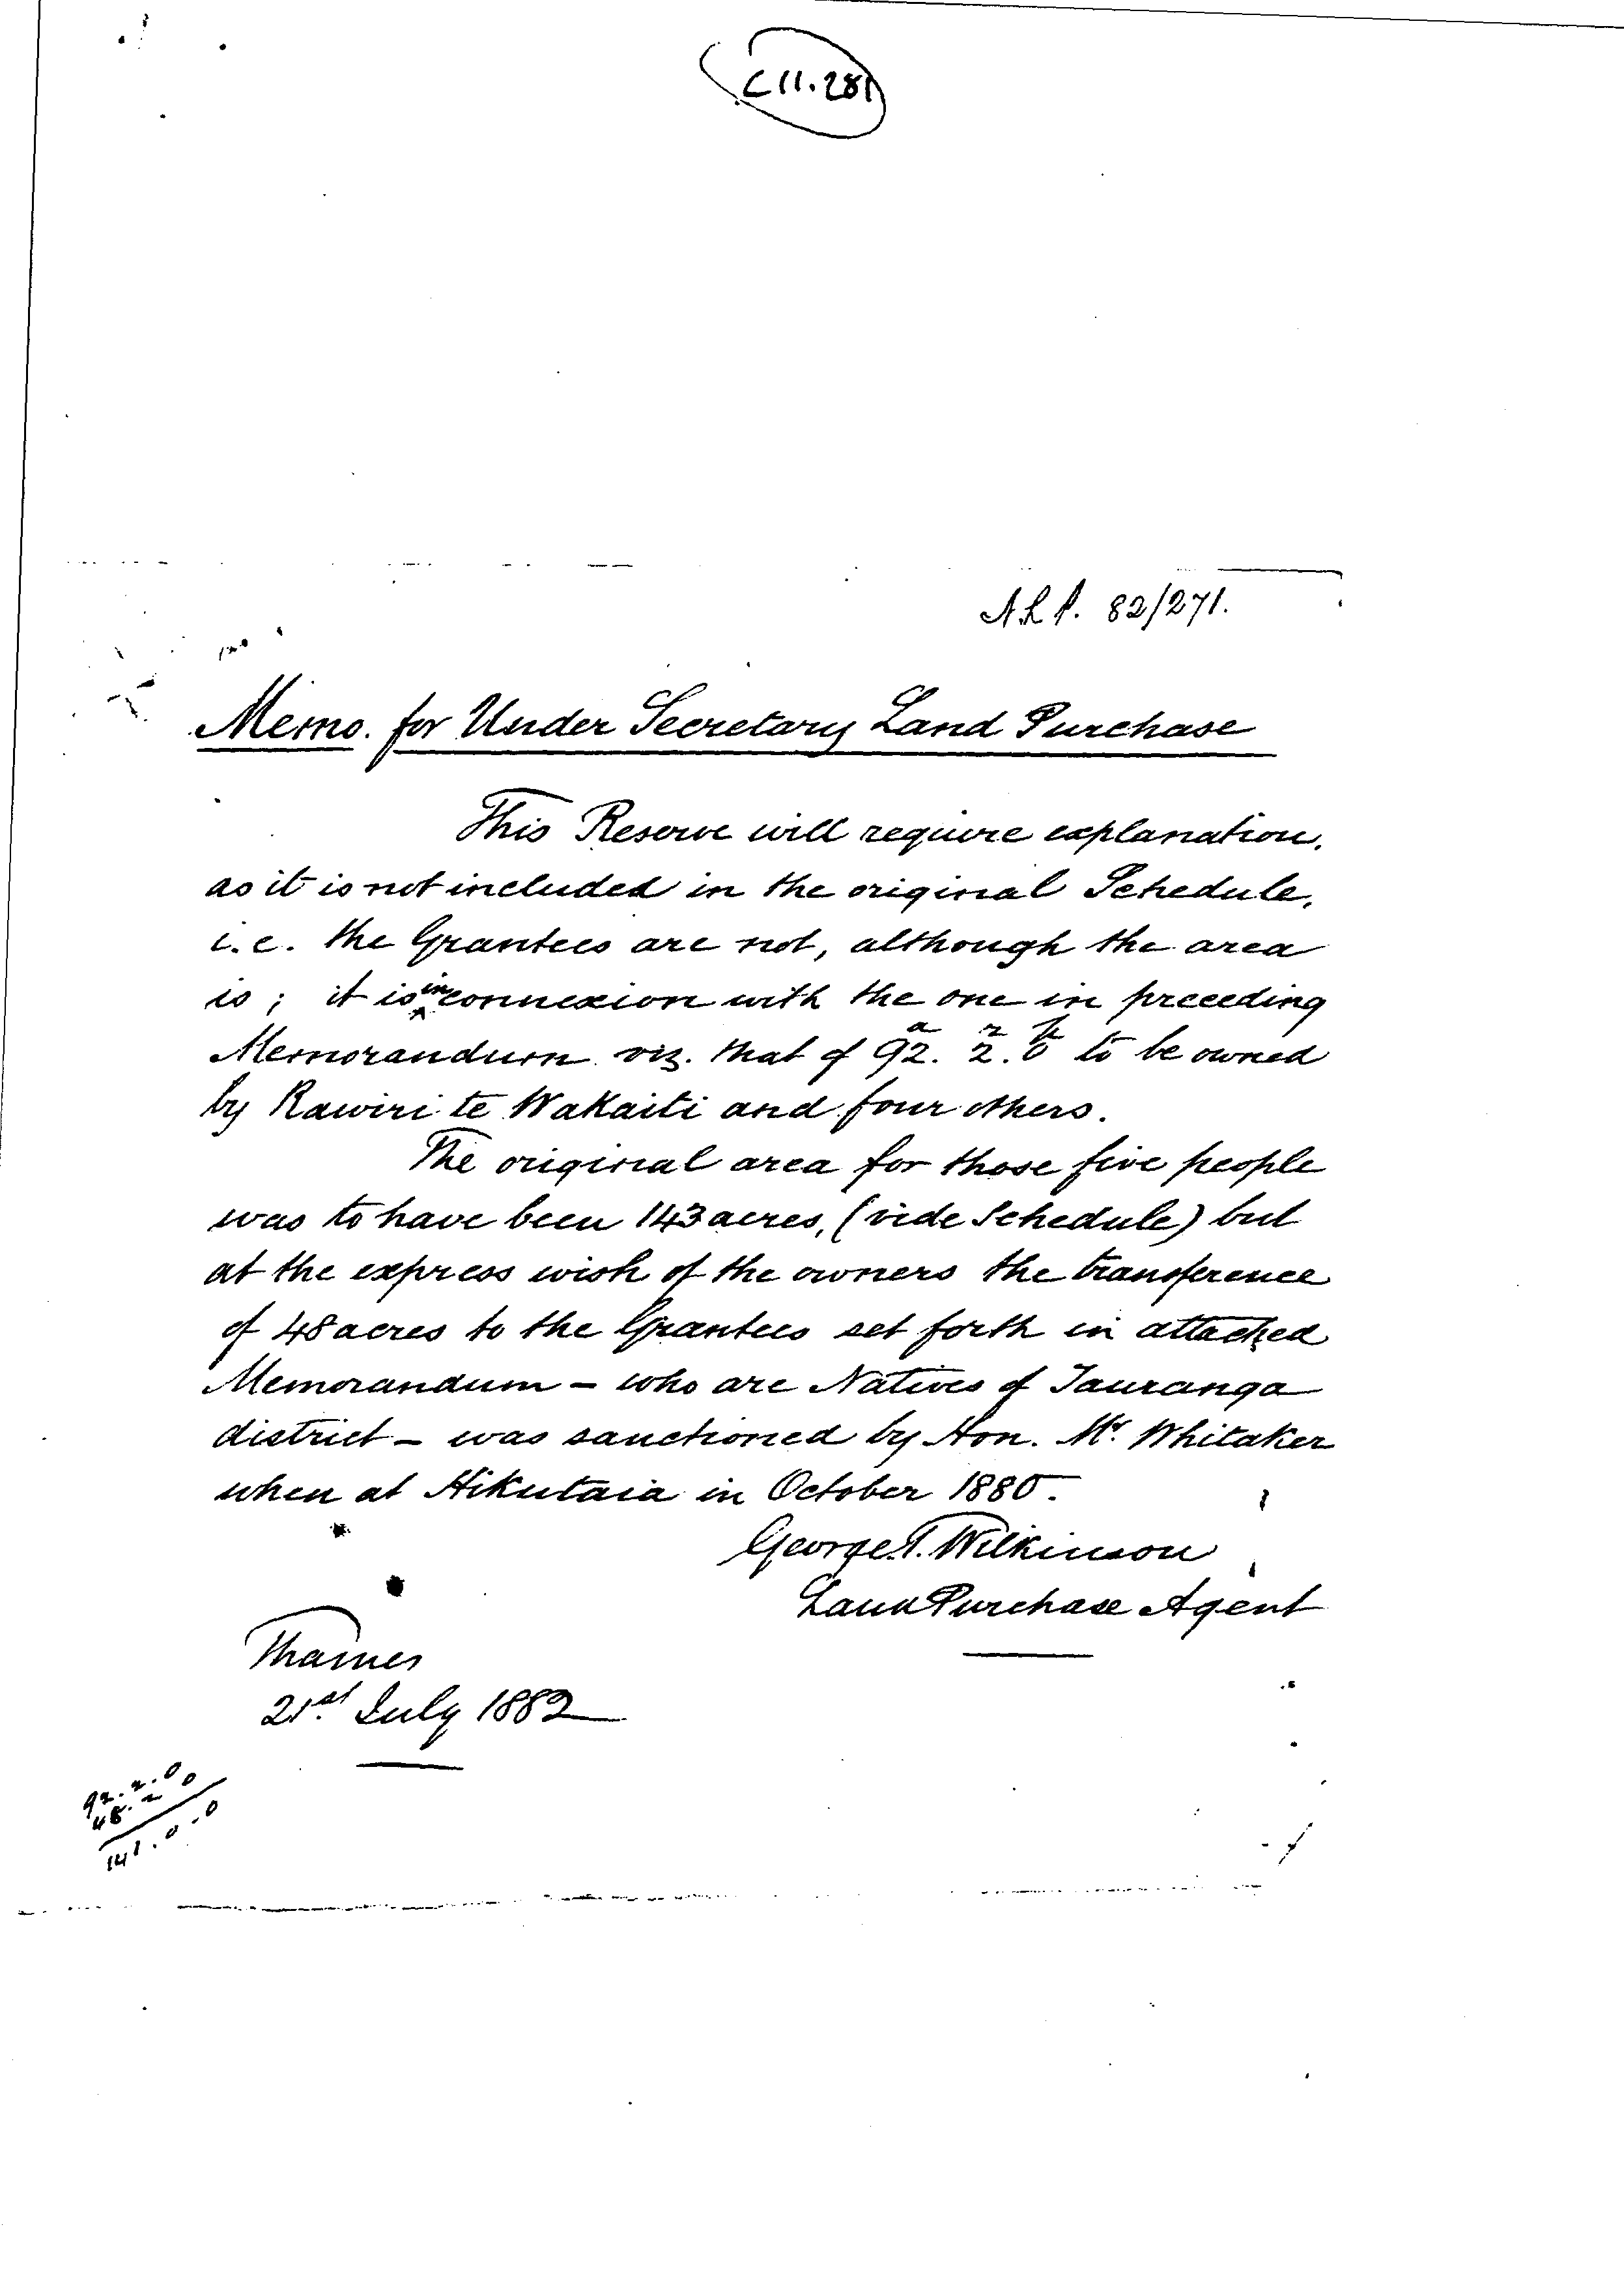 C 11.281
N.L.P. 82/271.
Memo. for Under Secretary Land Purchase
This Reserve will require explanation,
as it is not included in the original Schedule,
i.e. the Grantees are not, although the area
is; it is in connexion with the one in preceding
Memorandum viz. that of 92.a 2.r 0p to be owned
by Rawiri te Wakaiti and four others.
The original area for those five people
was to have been 143 acres, (vide Schedule) but
at the express wish of the owners the transference
of 48 acres to the Grantees set forth in attached
Memorandum – who are Natives of Tauranga
district – was sanctioned by Hon. Mr. Whitaker
when at Hikutaia in October 1880.
George T. Wilkinson
Land Purchase Agent
Thames
21st July 1882
92.2.0
48.2.0
141.0.0